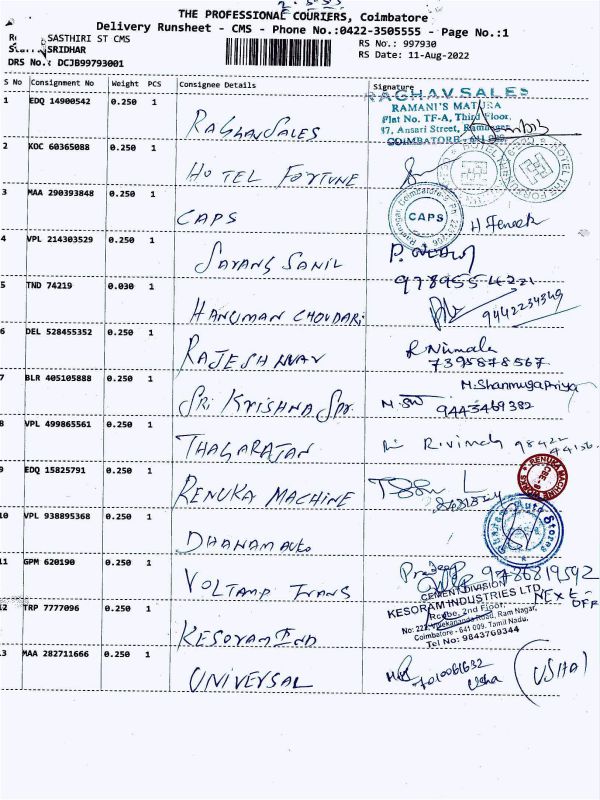 THE PROFESSIONAL COURIERS, Coimbatore
Delivery Runsheet - CMS - Phone No.:0422-3505555 - Page No.:1
SASTHIRI ST CMS
RS No.: 997930
SRIDHAR
RS Date: 11-Aug-2022
DRS No.: DCJB99793001
S No Consignment No Weight PCS Consignee Details Signature
1 EDQ 14900542 0.250 1 RAGHAV SALES
RAGHAV SALES
RAMANI'S MAYURA
Flat No. TF-A, Third Floor,
37, Ansari Street, Ramnagar,
COIMBATORE
2 KOC 60365088 0.250 1 HOTEL FORTUNE
3 MAA 290393848 0.250 1 CAPS
CAPS
4 VPL 214303529 0.250 1 SAYANG SANIL
978955 4221
5 TND 74219 0.030 1 HANUMAN CHOUDARI
9442234349
6 DEL 528455352 0.250 1 RAJESH
R Nirmala
7395878567
7 BLR 405105888 0.250 1 SRI KRISHNA SPR.
M.Shanmugapriya
9443469382
8 VPL 499865561 0.250 1 THAGARAJAN
98422
44136
9 EDQ 15825791 0.250 1 RENUKA MACHINE
RENUKA MACHINE
10 VPL 938895368 0.250 1 DHANAM AUTO
Auto Stores
11 GPM 620190 0.250 1 VOLTAMP TRANS
9786819592
12 TRP 7777096 0.250 1 KESORAM IND
CEMENT DIVISION
KESORAM INDUSTRIES LTD
2nd Floor,
No: 222, Vivekananda Road, Ram Nagar,
Coimbatore - 641 009. Tamil Nadu.
Tel No: 9843769344
13 MAA 282711666 0.250 1 UNIVERSAL
7010061632
Usha
(USHA)